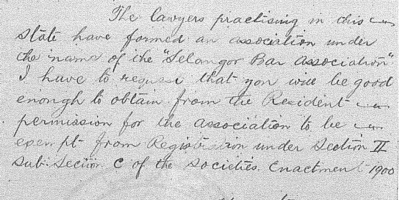 The lawyers practising in this
State have formed an association under
the name of the "Selangor Bar Association".
I have to request that you will be good
enough to obtain from the Resident
permission for the Association to be
exempt from Registration under Section II
Sub: Section C of the Societies Enactment 1900